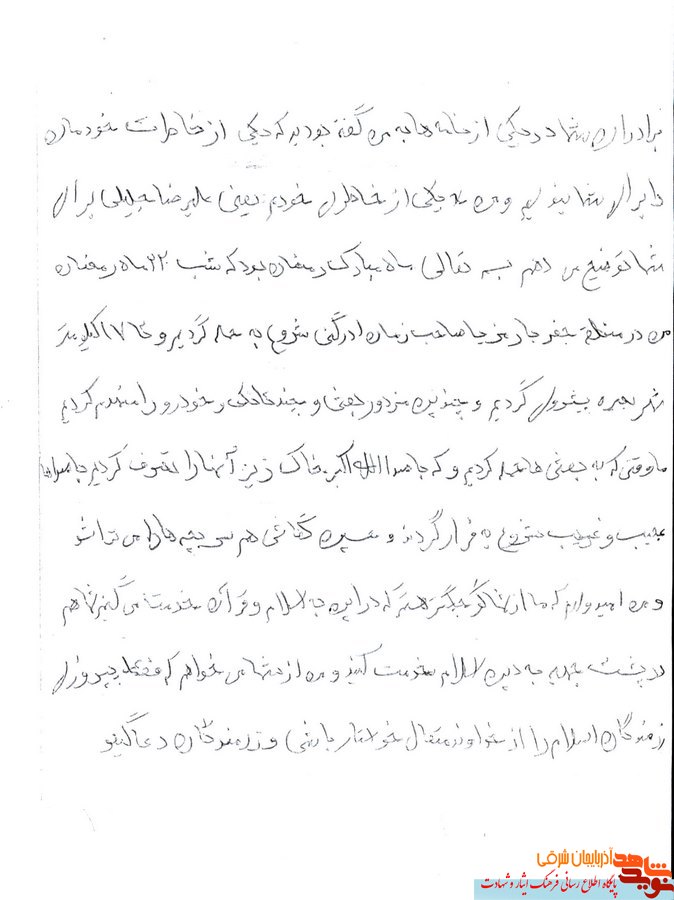 برادران شما در یکی از نامه ها به من گفته بودید که یکی از خاطرات خودمان
را برای شما بنویسم و من هم یکی از خاطرات خودم یعنی علیرضا جلیلی برای
شما توضیح می دهم بسمه تعالی ماه مبارک رمضان بود که شب ۲۲ ماه رمضان
من در منطقه با رمز یا صاحب زمان ادرکنی شروع به حمله کردیم و تا ۱۷ کیلومتر
شهر بصره پیشروی کردیم و چندین مزدور بعثی و چند تانک و خودرو را منهدم کردیم
ما وقتی که به بعثی ها حمله کردیم و که با صدا الله اکبر خاک زیر آنها را تصرف کردیم با صدا
عجیب و غریب شروع به فرار کردند و هم سر بچه ها
و من امیدوارم که ما از شما کوچکتر هستیم که در این به اسلام و قرآن خدمت می کنیم شما هم
در پشت جبهه به دین اسلام خدمت کنید و من از شما می خواهم که فقط پیروزی
رزمندگان اسلام را از خداوند متعال خواستار باشی و رزمندگان دعا کنید
نوید شاهد آذربایجان شرقی
پایگاه اطلاع رسانی فرهنگ ایثار و شهادت